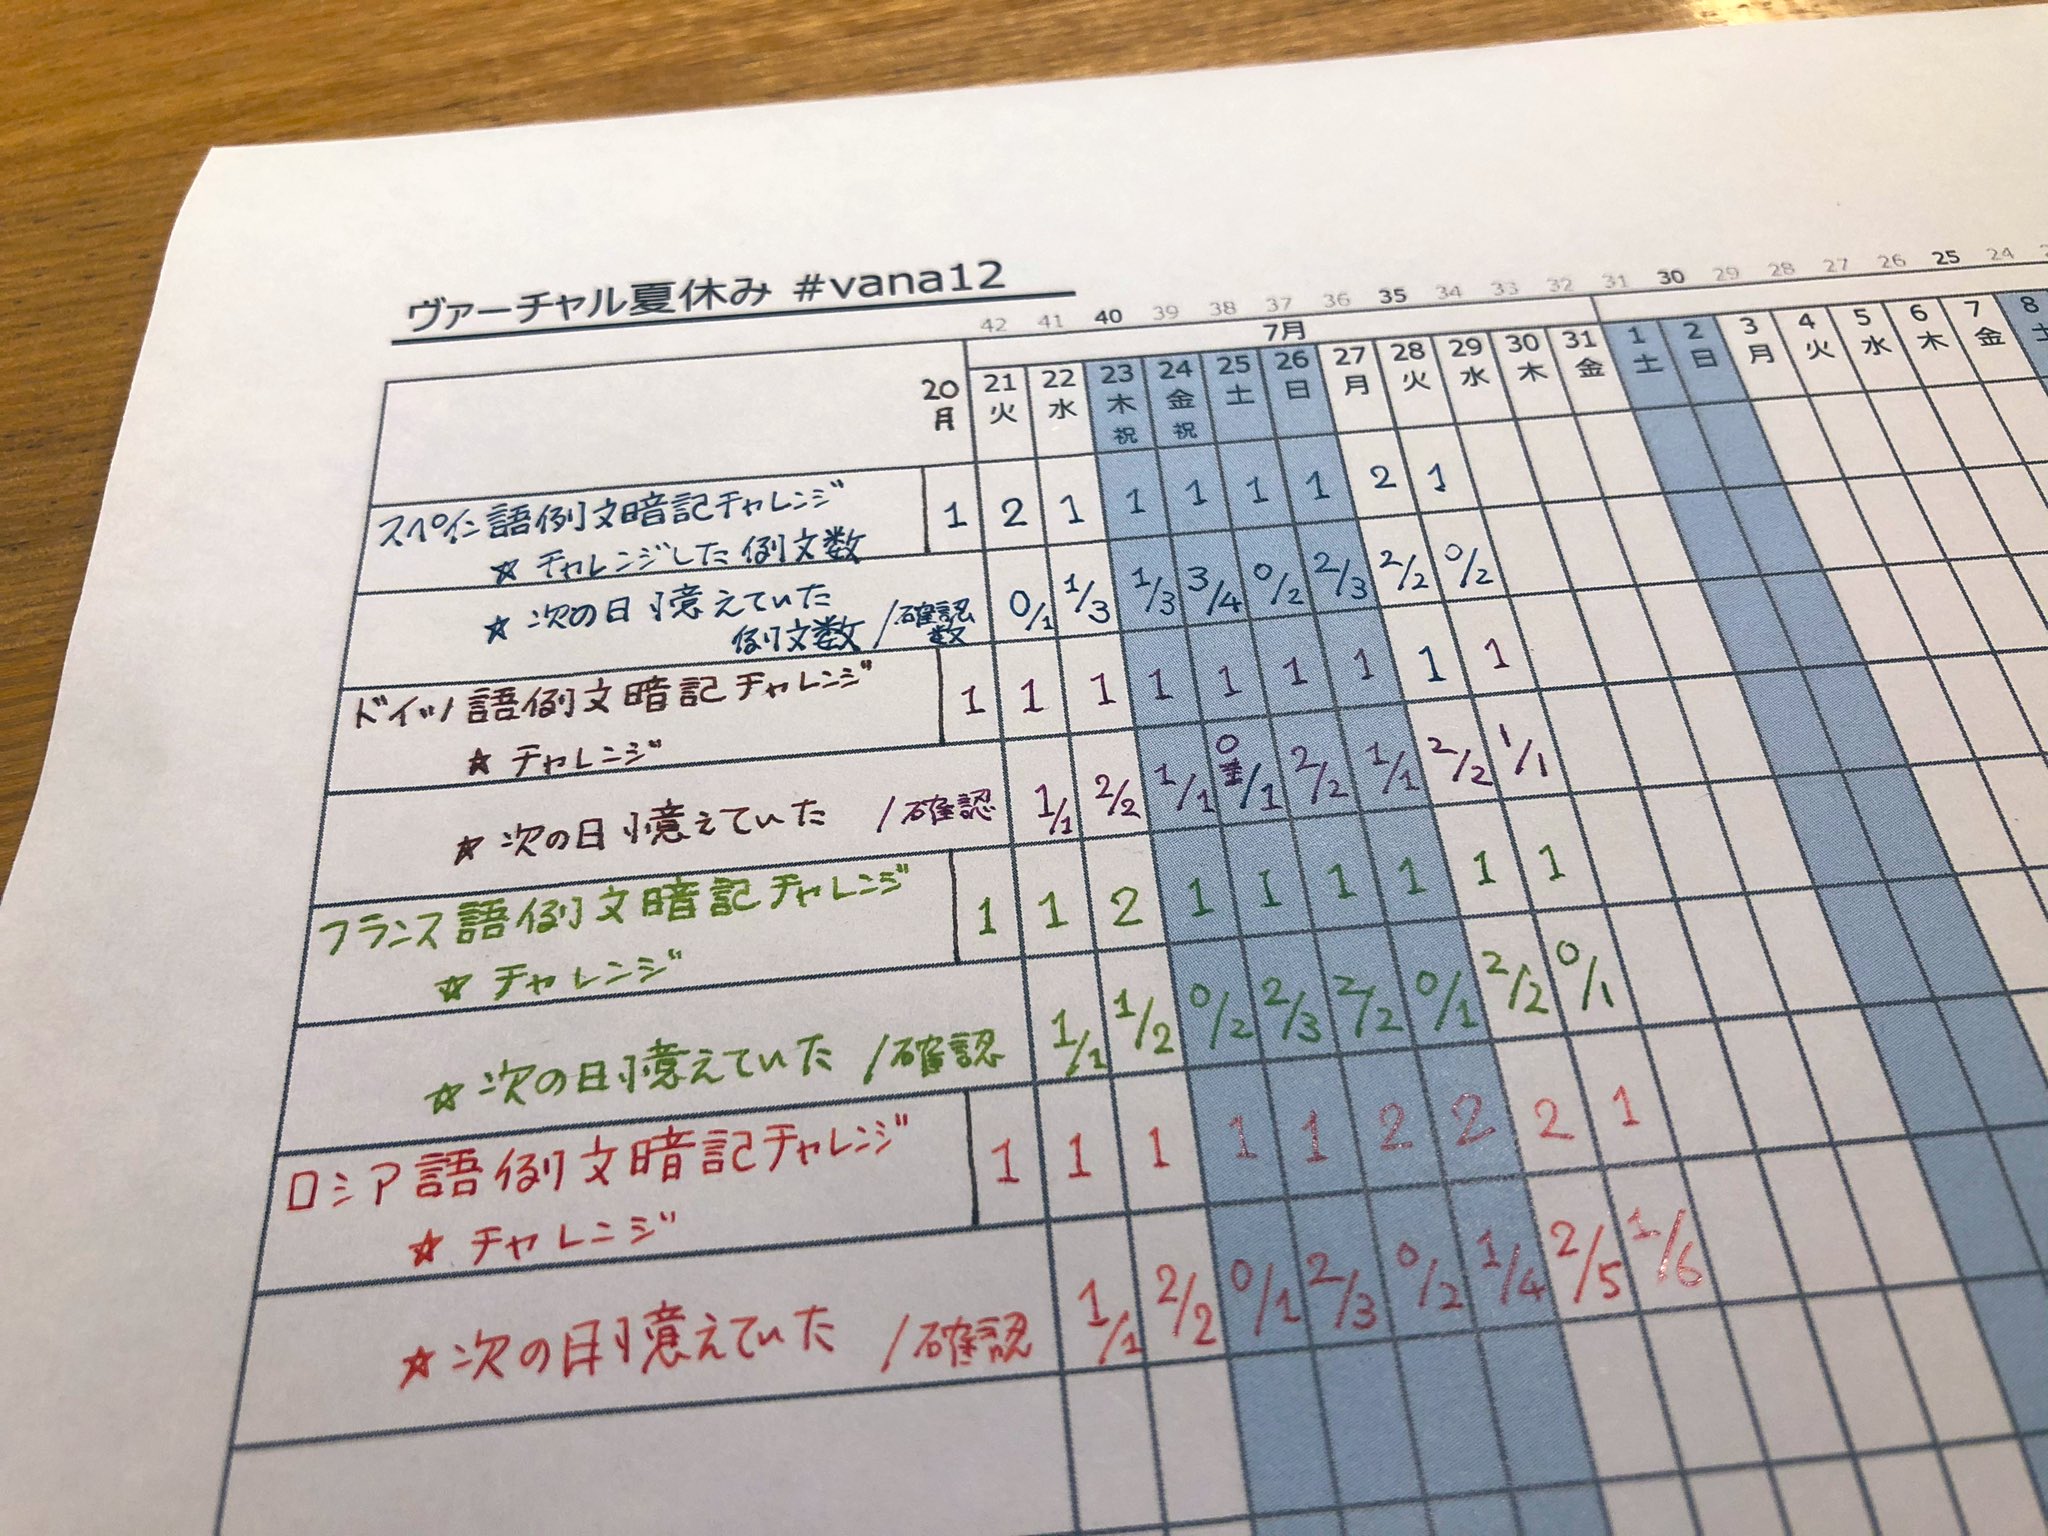 ヴァーチャル夏休み #vana12
42 41 40 39 38 37 36 35 34 33 32 31 30 29 28 27 26 25 24
7月
20 21 22 23 24 25 26 27 28 29 30 31 1 2 3 4 5 6 7 8
月 火 水 木 金 土 日 月 火 水 木 金 土 日 月 火 水 木 金 土
祝 祝
スペイン語例文暗記チャレンジ
☆ チャレンジした例文数 1 2 1 1 1 1 1 2 1
☆ 次の日憶えていた
例文数/確認数 0/1 1/3 1/3 3/4 0/2 2/3 2/2 0/2
ドイツ語例文暗記チャレンジ
☆ チャレンジ 1 1 1 1 1 1 1 1 1
☆ 次の日憶えていた /確認 1/1 2/2 1/1 0/1 2/2 1/1 2/2 1/1
フランス語例文暗記チャレンジ
☆ チャレンジ 1 1 2 1 1 1 1 1 1
☆ 次の日憶えていた /確認 1/1 1/2 0/2 2/3 2/2 0/1 2/2 0/1
ロシア語例文暗記チャレンジ
☆ チャレンジ 1 1 1 1 1 2 2 2 1
☆ 次の日憶えていた /確認 1/1 2/2 0/1 2/3 0/2 1/4 2/5 1/6